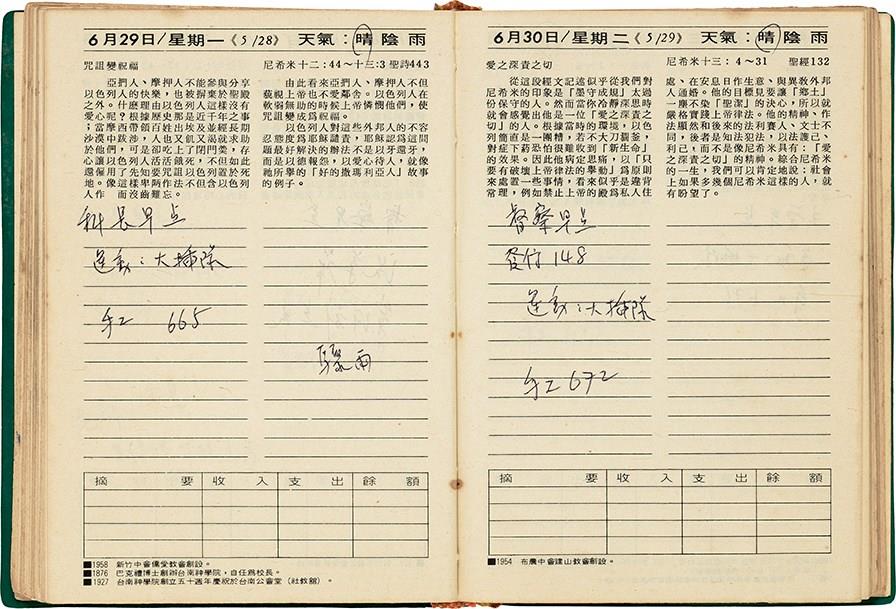 6月29日/星期一《5/28》 天氣:晴 陰 雨
咒詛變祝福 尼希米十二:44~十三:3 聖詩443
亞捫人、摩押人不能參與分享
以色列人的快樂,也被摒棄於聖殿
之外。什麼理由以色列人這樣沒有
愛心呢?根據歷史那是近千年之事
;當摩西帶領百姓出埃及並經長期
由此看來亞捫人、摩押人不但
藐視上帝也不愛鄰舍。以色列人在
軟弱無助的時候上帝憐憫他們,使
咒詛變成爲祝福。
以色列人對這些外邦人的不容
忍態度爲耶穌譴責,耶穌認爲這問
題最好解決的辦法不是以牙還牙,
而是以德報怨,以愛心待人,就像
祂所舉的「好的撒瑪利亞人」故事
的例子。
科長早点
運動:大掃除
手工 665
驟雨
摘要 收入 支出 餘額
■1958 新竹中會僑愛教會創設。
■1876 巴克禮博士創辦台南神學院,自任爲校長。
■1927 台南神學院創立五十週年慶祝於台南公會堂(社教館)。
6月30日/星期二《5/29》 天氣:晴 陰 雨
愛之深責之切 尼希米十三:4~31 聖經132
從這段經文記述似乎從我們對
尼希米的印象是「墨守成規」太過
份保守的人。然而當你冷靜深思時
就會感覺出他是一位「愛之深責之
切」的人。根據當時的環境,以色
列簡直是一團糟,若不大刀濶釜,
對症下葯恐怕很難收到「新生命」
的效果。因此他病定思痛,以「只
要有破壞上帝律法的擧動」爲原則
來處置一些事情,看來似乎是違背
常理,例如禁止在聖的殿爲私人住
處、在安息日作生意、與異教外邦
人通婚。他的目的是要讓「鄉土」
一塵不染「聖潔」的決心,所以就
嚴格實踐上帝律法。他的精神、作
法顯然和後來的法利賽人、文士不
同,後者是知法犯法,以法護己、
利己,而不是像尼希米具有:「愛
之深責之切」的精神。綜合尼希米
的一生,我們可以肯定地說:社會
上如果多幾個尼希米這樣的人,就
有盼望了。
督察早点
發行 148
運動:大掃除
手工 672
摘要 收入 支出 餘額
■1954 布農中會建山教會創設。